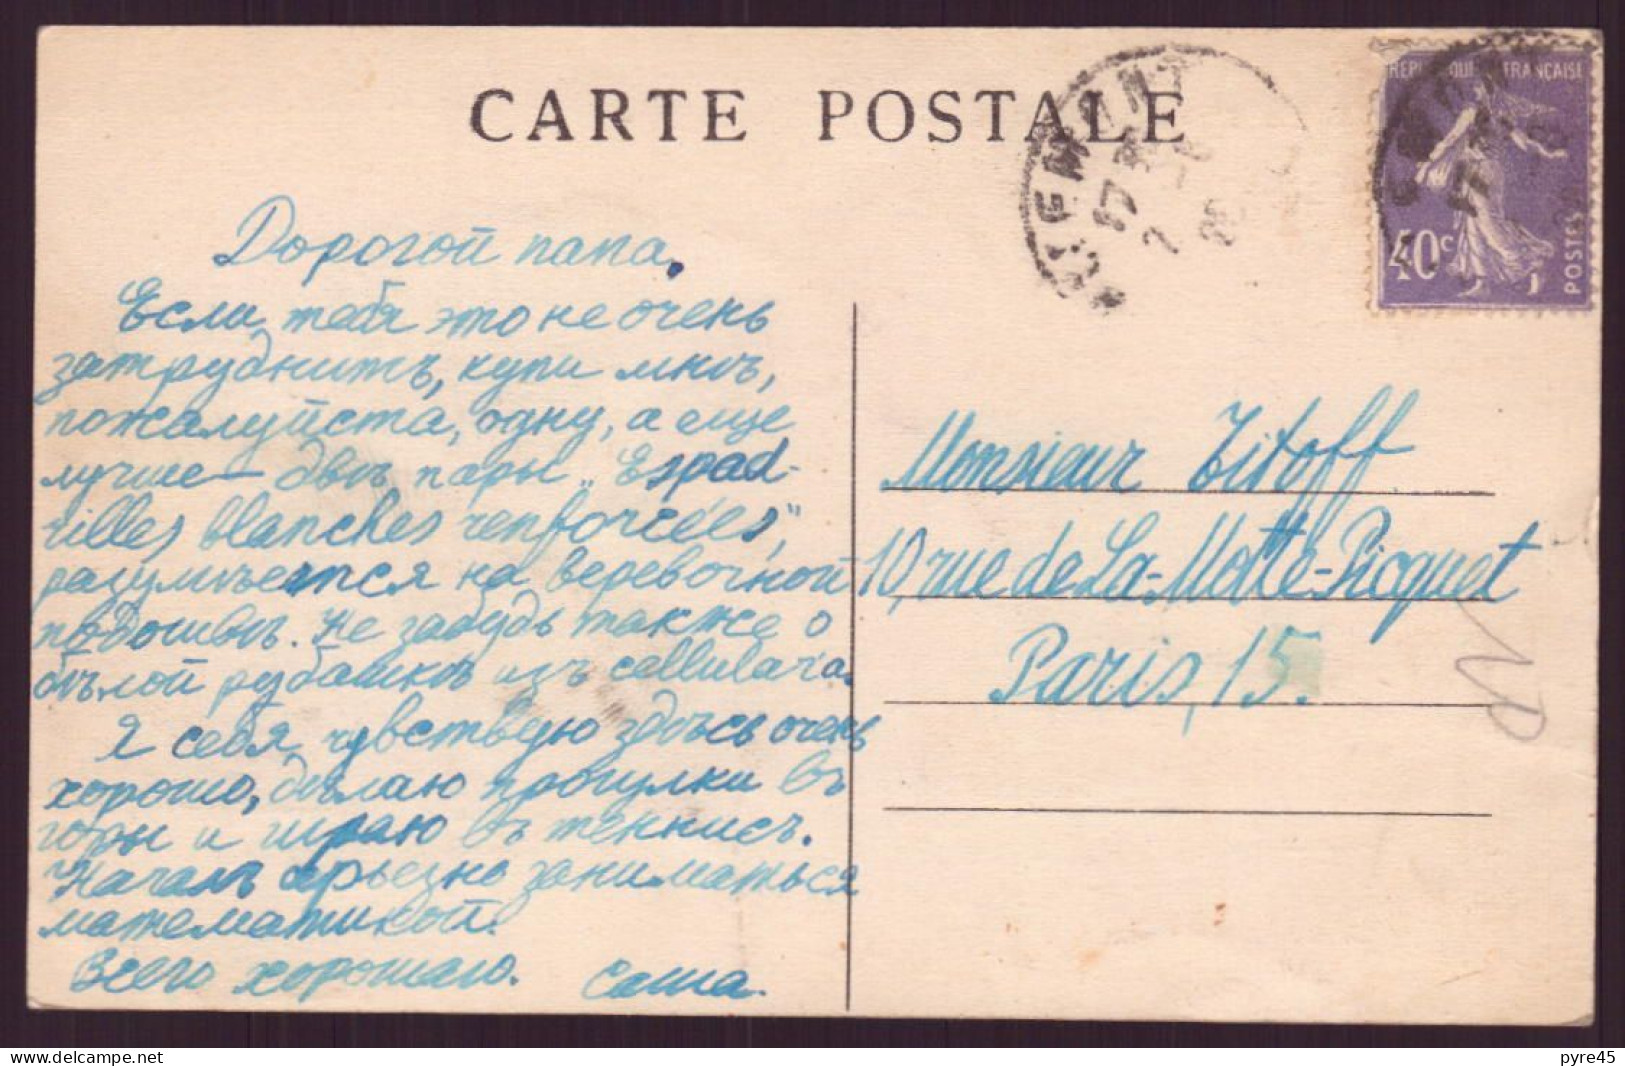 CARTE POSTALE
REPUBLIQUE FRANÇAISE
40c
POSTES
Дорогой папа.
Если тебя это не очень
затруднитъ, купи мнѣ,
пожалуйста, одну, а еще
лучше – двѣ пары „Espad-
rilles blanches renforcées",
разумѣется на веревочной
подошвѣ. Не забудь также о
бѣлой рубашкѣ изъ cellular'а.
Я себя чувствую здѣсь очень
хорошо, дѣлаю прогулки въ
горы и играю въ теннисъ.
Началъ серьезно заниматься
математикой.
Всего хорошаго. Саша.
Monsieur Titoff
10, rue de La-Motte-Picquet
Paris, 15.
pyre45